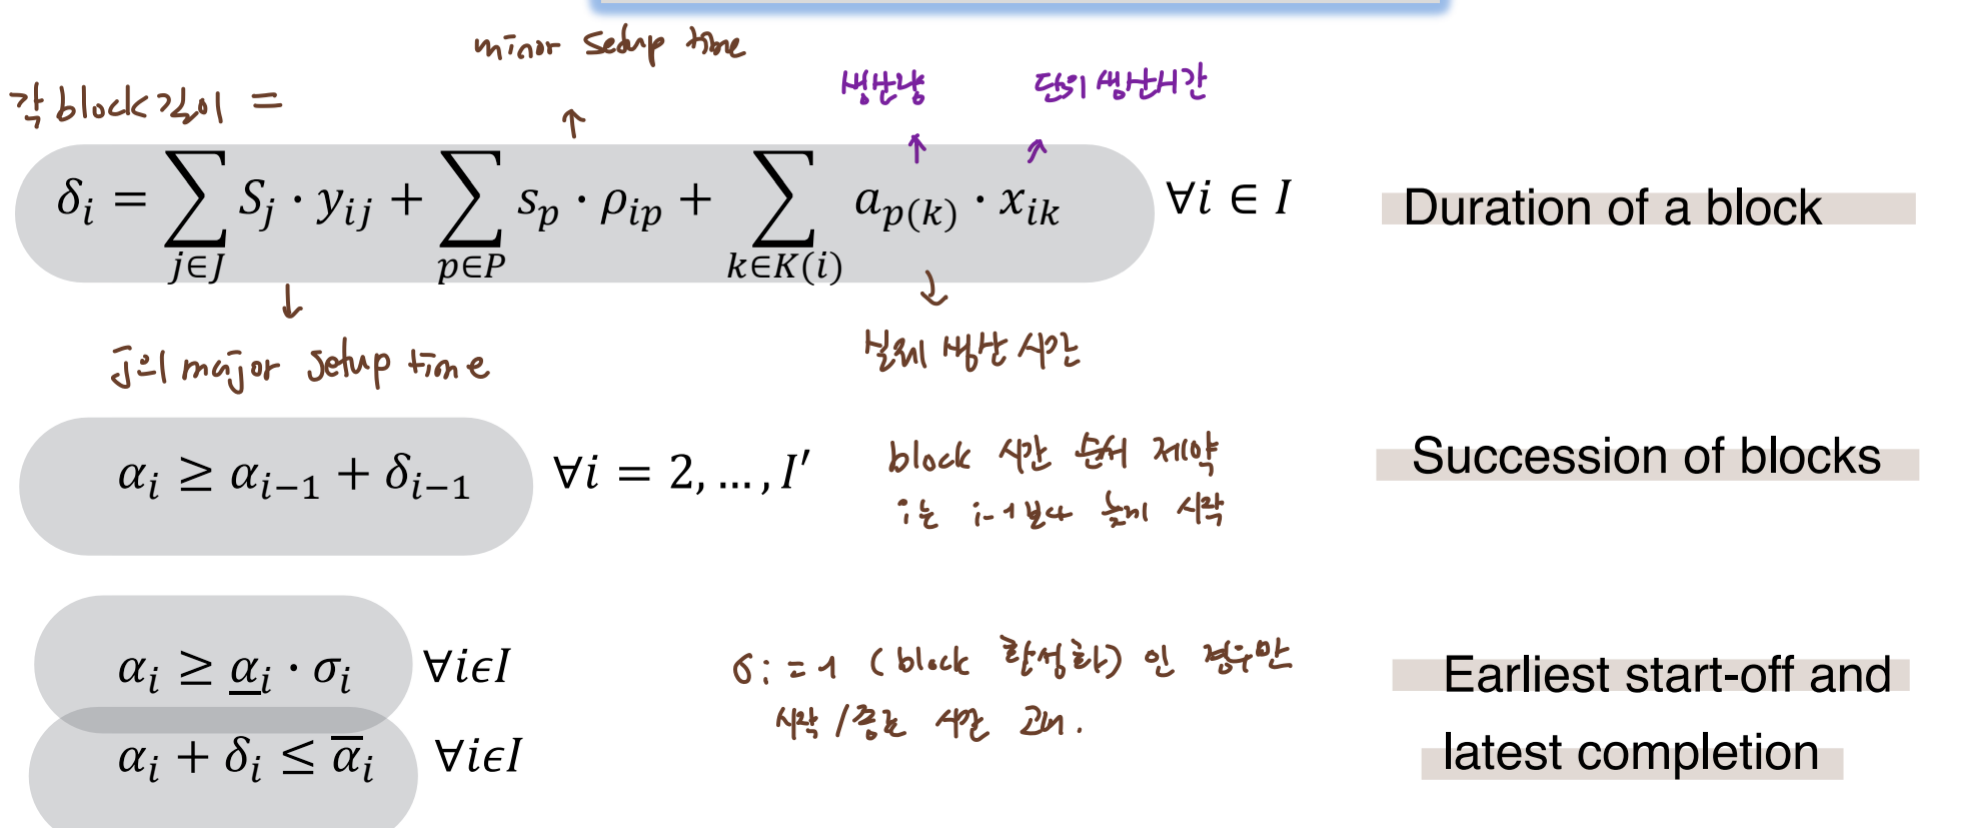 minor setup time
각 block 길이 =
생산량
단위 생산시간
δ_i = ∑_{j∈J} S_j · y_{ij} + ∑_{p∈P} s_p · ρ_{ip} + ∑_{k∈K(i)} a_{p(k)} · x_{ik} ∀i ∈ I
Duration of a block
j의 major setup time
실제 생산 시간
α_i ≥ α_{i−1} + δ_{i−1} ∀i = 2, … , I′
block 시간 순서 제약
i는 i-1보다 늦게 시작
Succession of blocks
α_i ≥ \underline{α}_i · σ_i ∀iϵI
σi = 1 (block 활성화) 인 경우만
시작 / 종료 시간 고려.
Earliest start-off and
α_i + δ_i ≤ \overline{α}_i ∀iϵI
latest completion